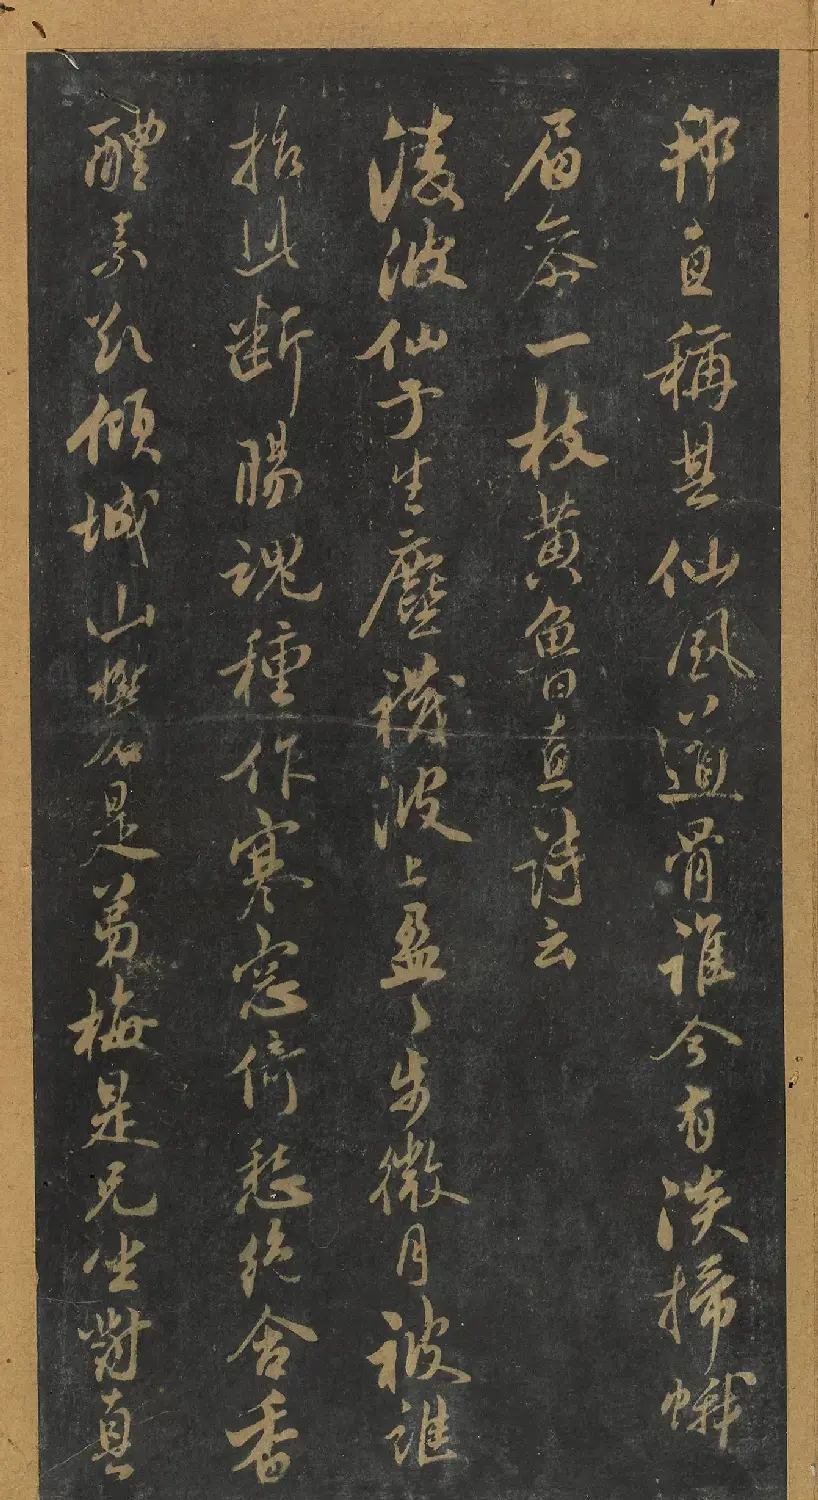 邦直稱其仙風道骨誰今有淡掃蛾
眉篸一枝黃魯直詩云
淩波仙子生塵襪波上盈〻步微月被誰
招此斷腸魂種作寒窓倚愁絕含香
醴素欲傾城山礬是弟梅是兄坐對真